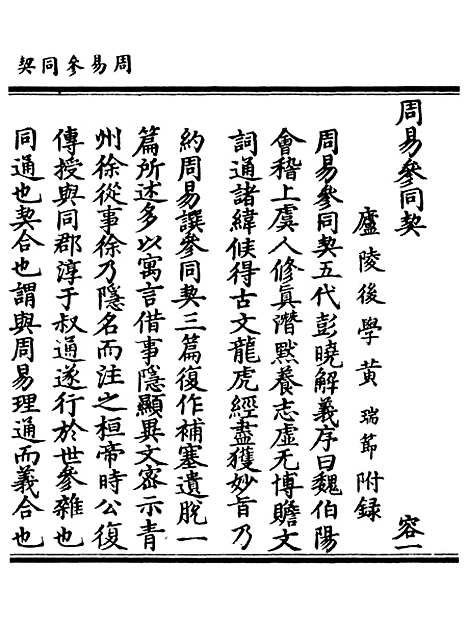 周易參同契
周易參同契　容一
廬陵後學黄瑞節附録
周易參同契五代彭曉解義序曰魏伯陽
會稽上虞人修真潛黙養志虛无博贍文
詞通諸緯候得古文龍虎經盡獲妙旨乃
約周易譔參同契三篇復作補塞遺脱一
篇所述多以寓言借事隱顯異文宻示青
州徐從事徐乃隱名而注之桓帝時公復
傳授與同郡淳于叔通遂行於世參雜也
同通也契合也謂與周易理通而義合也